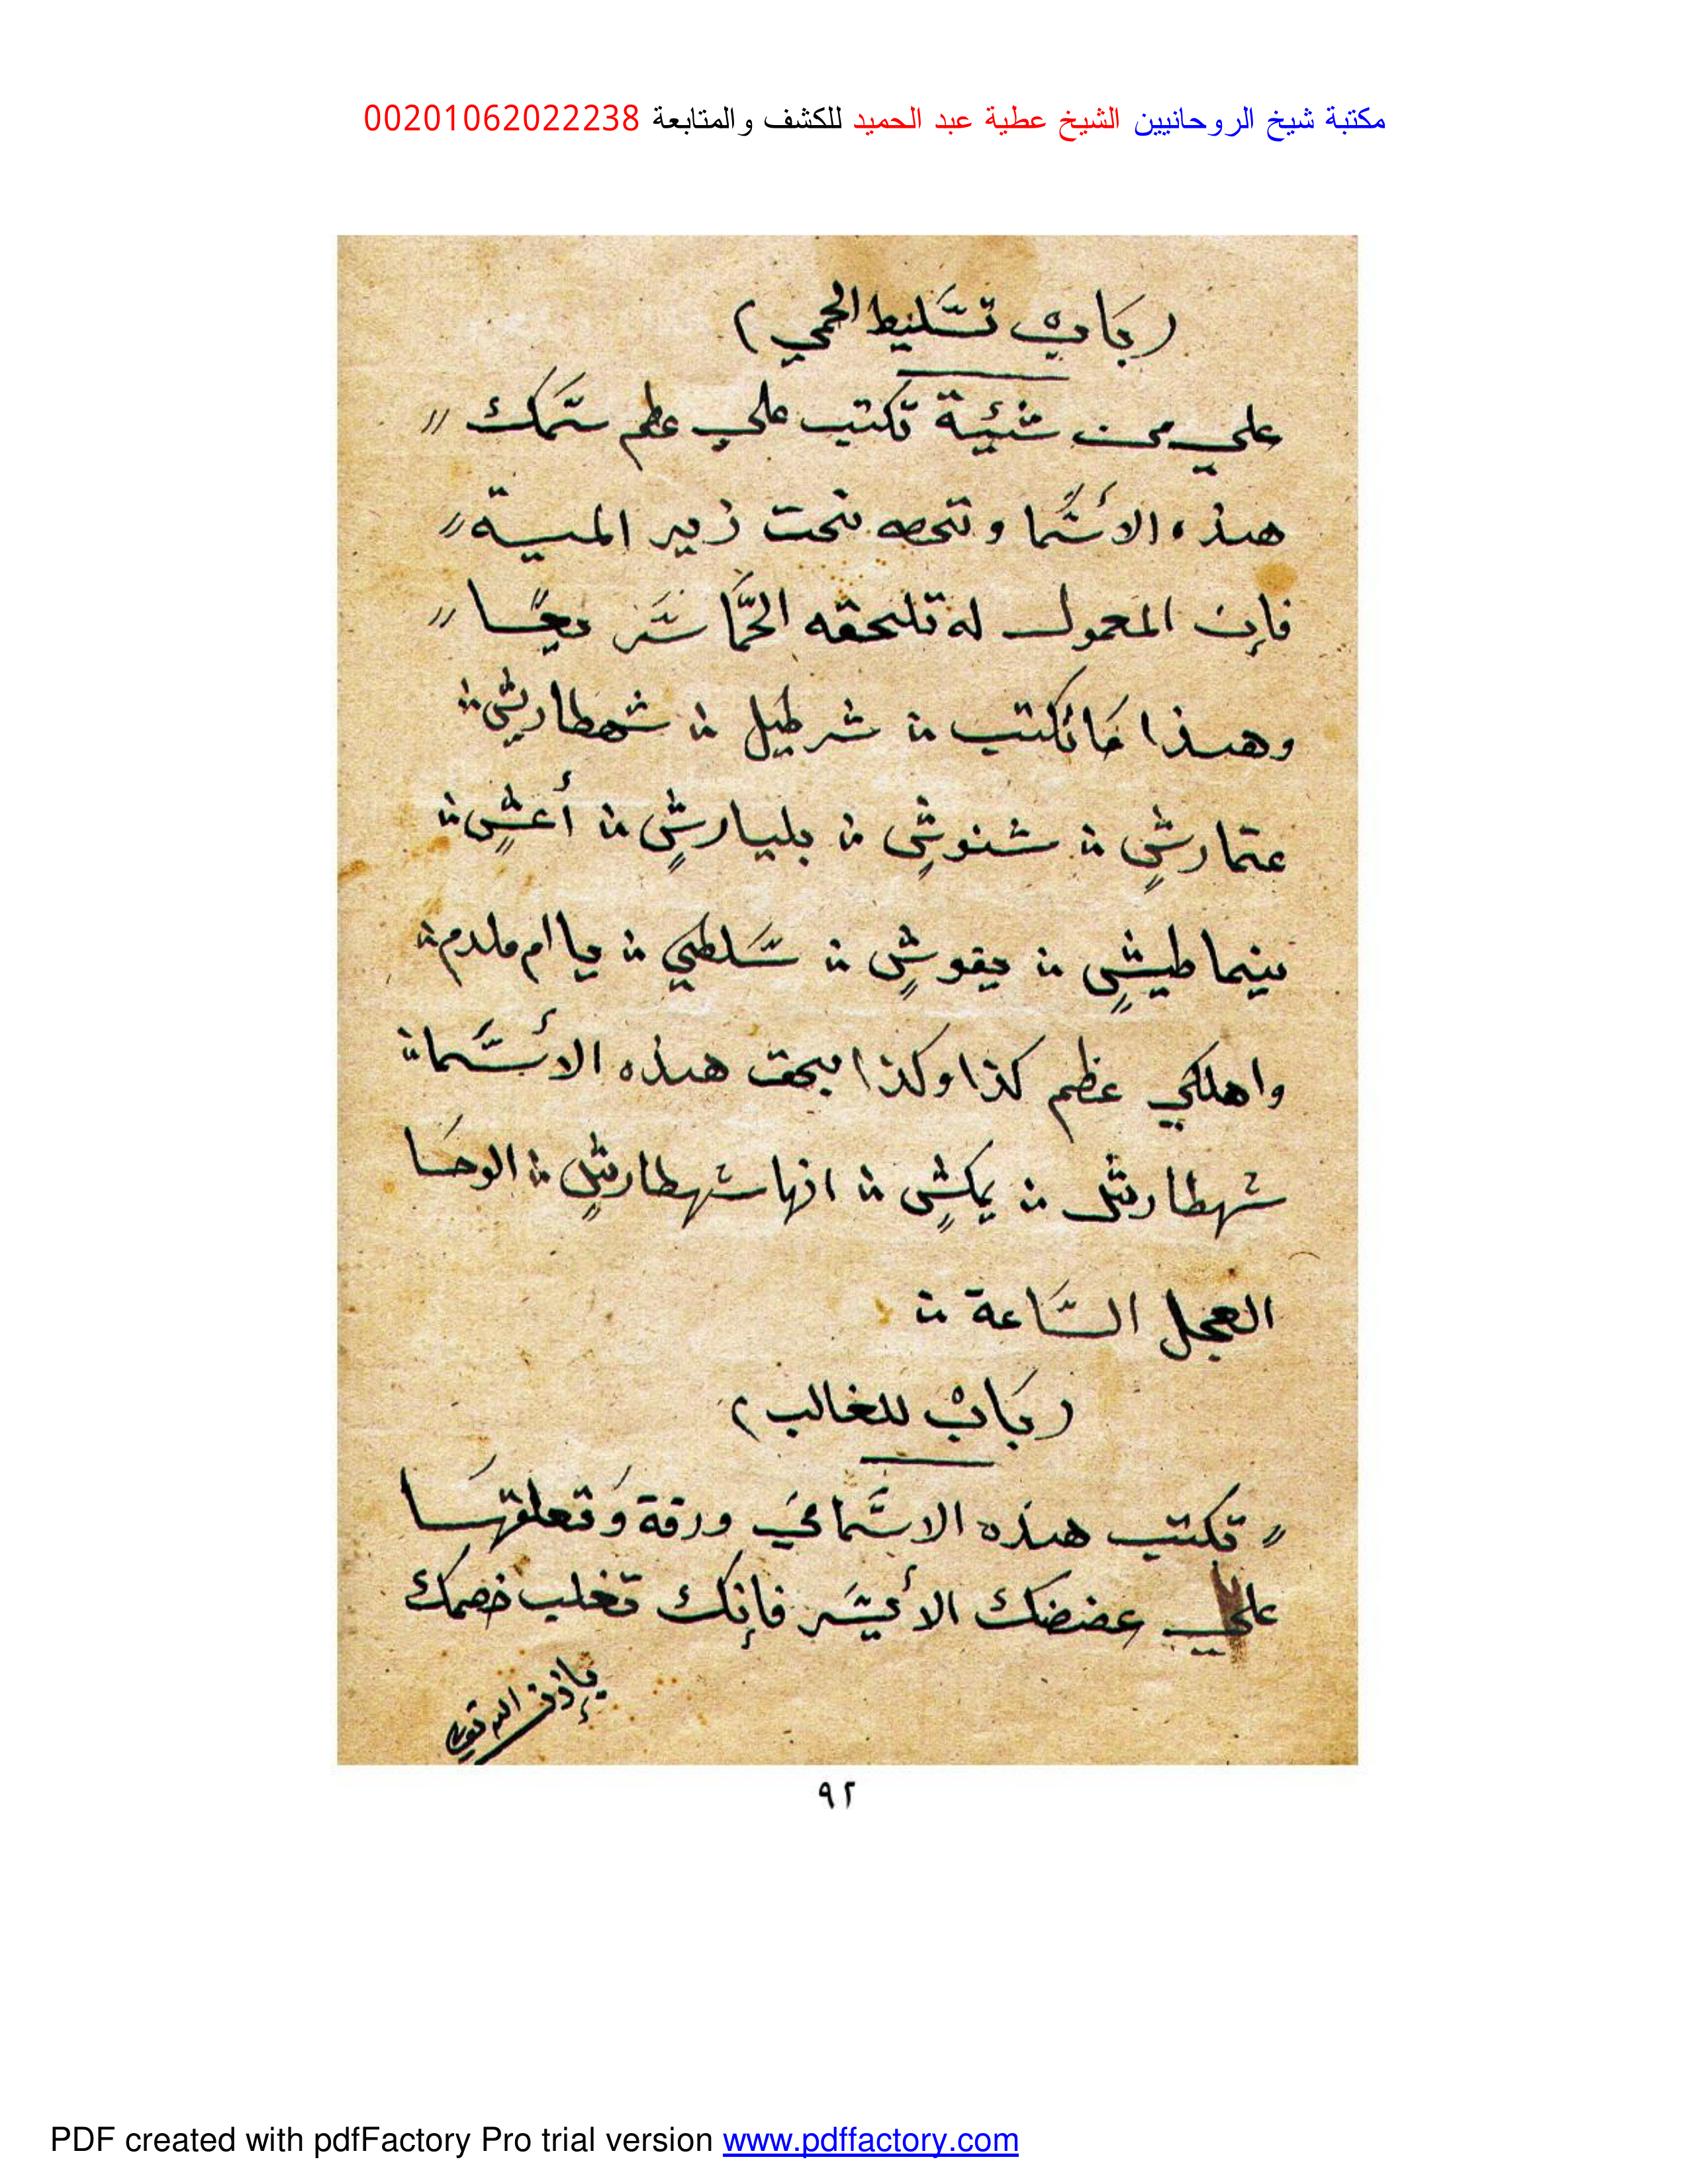 مكتبة شيخ الروحانيين الشيخ عطية عبد الحميد للكشف والمتابعة 00201062022238
(باب تسليط الحمي)
علي من شئية تكتب علي عظم سمك
هذه الأسما وتحطه تحت زير المية
فإن المعمول له تلحقه الحما سريعا
وهذا ما تكتب شرطيل شهطارش
عتمارش شنوش بليارش أعش
طيش يقوش سلطي يا ام ملدم
واهلكي عظم كذا وكذا بحق هذه الأسما
شهطارش يكش انها شهطارش الوحا
العجل الساعة
(باب للغالب)
تكتب هذه الاسما في ورقة وتعلقها
علي عضضك الأيسر فإنك تغلب خصمك
بإذن الله
٩٢
PDF created with pdfFactory Pro trial version www.pdffactory.com